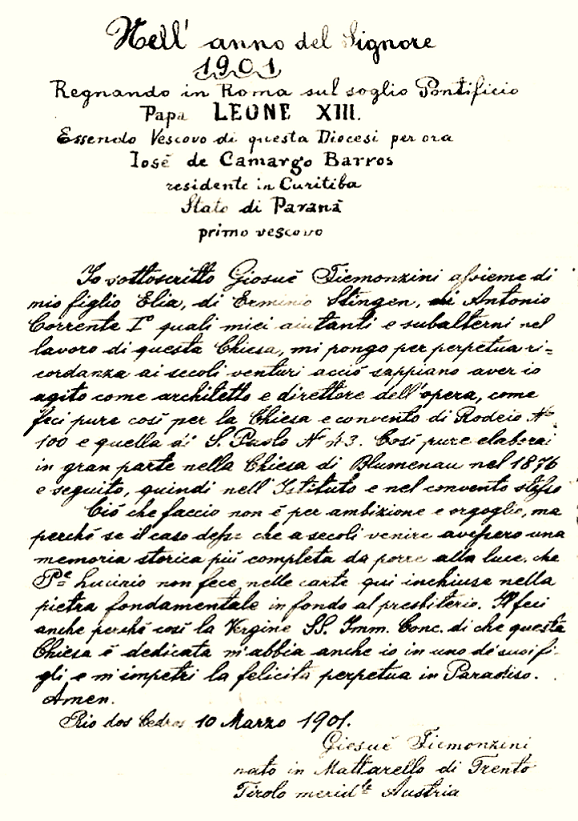 Nell' anno del Signore
1901
Regnando in Roma sul soglio Pontificio
Papa LEONE XIII.
Essendo Vescovo di questa Diocesi per ora
Iosè de Camargo Barros
residente in Curitiba
Stato di Paranà
primo vescovo
Io sottoscritto Giosuè Fiemonzini assieme di
mio figlio Elia, di Erminio Stingen, di Antonio
Corrente I° quali miei aiutanti e subalterni nel
lavoro di questa Chiesa, mi pongo per perpetua ri-
cordanza ai secoli venturi acciò sappiano aver io
agito come architetto e direttore dell'opera, come
feci pure così per la Chiesa e convento di Rodeio N°
100 e quella di S. Paolo N° 43. Così pure elaborai
in gran parte nella Chiesa di Blumenau nel 1876
e seguito, quindi nell'Istituto e nel convento stesso
Ciò che faccio non è per ambizione e orgoglio, ma
perchè se il caso desse che a secoli venire avessero una
memoria storica più completa da porre alla luce. che
Pe Lucinio non fece, nelle carte qui inchiuse nella
pietra fondamentale in fondo al presbiterio. Il feci
anche perchè così la Vergine SS. Imm. Conc. di che questa
Chiesa è dedicata m'abbia anche io in uno de' suoi fi-
gli e m'impetri la felicità perpetua in Paradiso.
Amen.
Rio dos Cedros 10 Marzo 1901.
Giosuè Fiemonzini
nato in Mattarello di Trento
Tirolo merid.le Austria